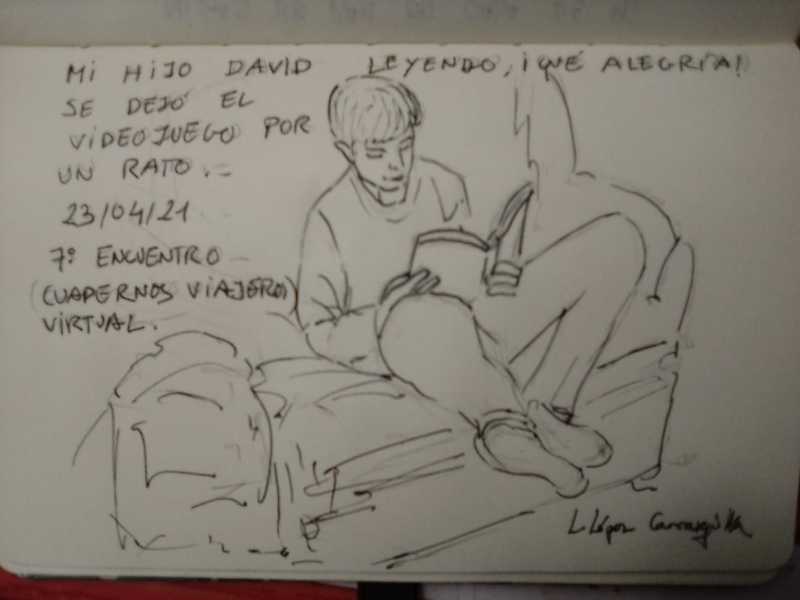 MI HIJO DAVID LEYENDO, ¡QUÉ ALEGRÍA!
SE DEJÓ EL
VIDEOJUEGO POR
UN RATO.-
23/04/21
7º ENCUENTRO
(CUADERNOS VIAJEROS)
VIRTUAL.
L. López